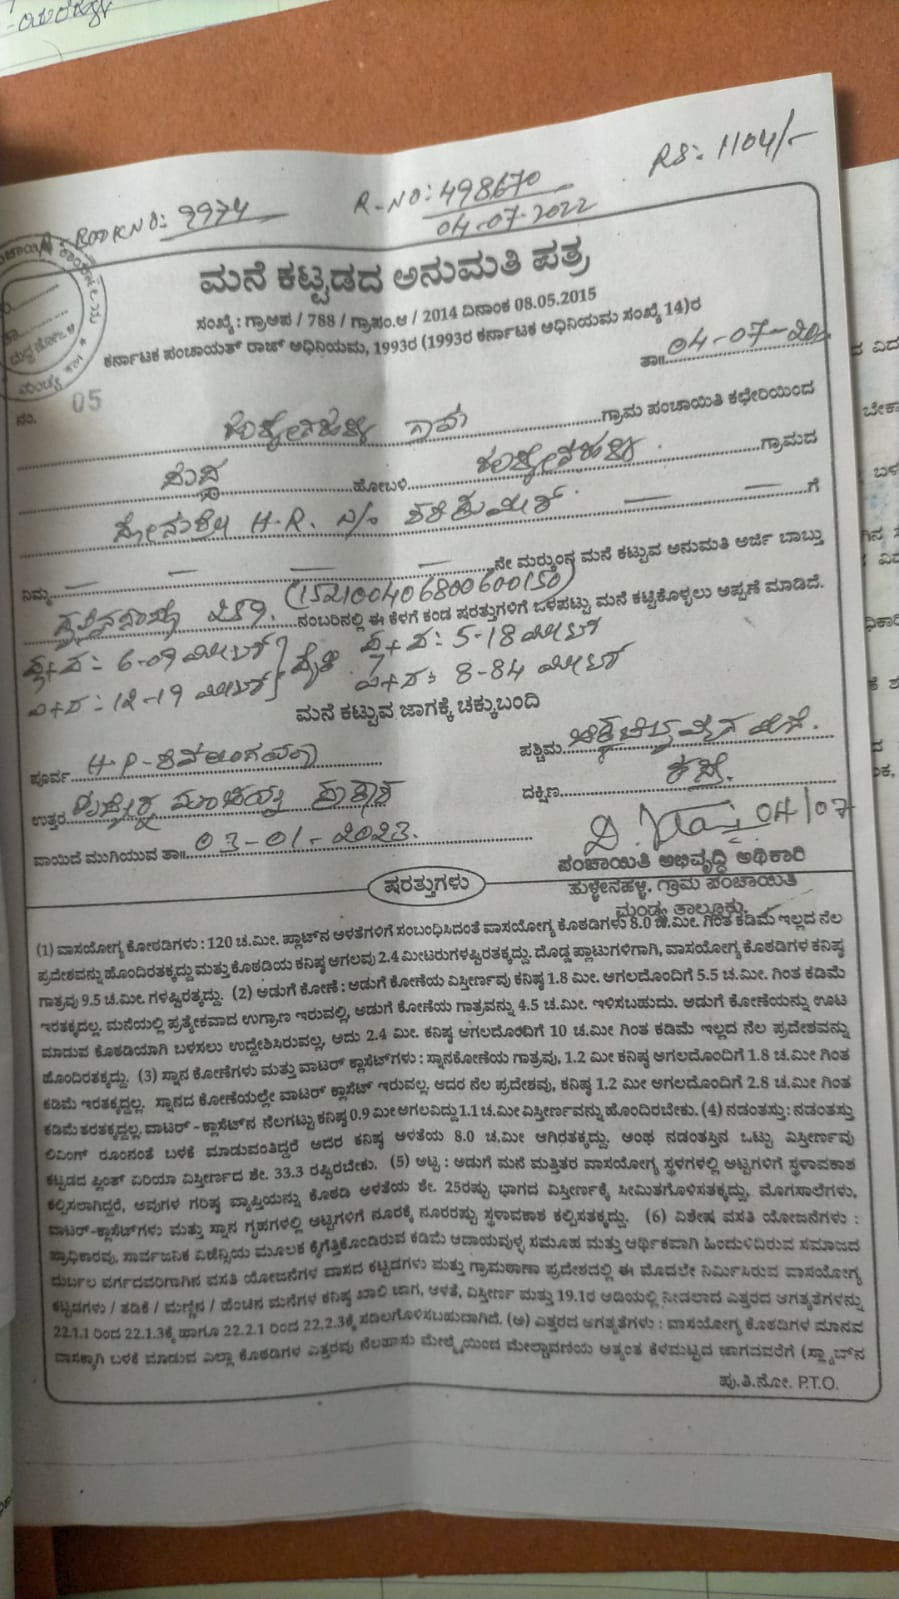 BOOK NO: 9974
R-NO: 498670
04-07-2022
RS: 1104/-
ಮನೆ ಕಟ್ಟಡದ ಅನುಮತಿ ಪತ್ರ
ಸಂಖ್ಯೆ : ಗ್ರಾಅಪ / 788 / ಗ್ರಾಪಂ.ಅ / 2014 ದಿನಾಂಕ 08.05.2015
ಕರ್ನಾಟಕ ಪಂಚಾಯತ್ ರಾಜ್ ಅಧಿನಿಯಮ, 1993ರ (1993ರ ಕರ್ನಾಟಕ ಅಧಿನಿಯಮ ಸಂಖ್ಯೆ 14)ರ
ನಂ. 05
ತಾ॥ 04-07-20
ಗ್ರಾಮ ಪಂಚಾಯಿತಿ ಕಛೇರಿಯಿಂದ
ಹೋಬಳಿ ಗ್ರಾಮದ
H.R. ಗೆ
ನಿಮ್ಮ ನೇ ಮನೆ ಕಟ್ಟುವ ಅನುಮತಿ ಅರ್ಜಿ ಬಾಬ್ತು
259. (152100406800600150) ನಂಬರಿನಲ್ಲಿ ಈ ಕೆಳಗೆ ಕಂಡ ಷರತ್ತುಗಳಿಗೆ ಒಳಪಟ್ಟು ಮನೆ ಕಟ್ಟಿಕೊಳ್ಳಲು ಅಪ್ಪಣೆ ಮಾಡಿದೆ.
ಪೂ+ಪ: 6-09 ಮೀಟರ್ ಪೈಕಿ ಪೂ+ಪ: 5-18 ಮೀಟರ್
ಉ+ದ: 12-19 ಮೀಟರ್ ಉ+ದ: 8-84 ಮೀಟರ್
ಮನೆ ಕಟ್ಟುವ ಜಾಗಕ್ಕೆ ಚಕ್ಕುಬಂದಿ
ಪೂರ್ವ H-P- ಪಶ್ಚಿಮ
ಉತ್ತರ ದಕ್ಷಿಣ
ವಾಯಿದೆ ಮುಗಿಯುವ ತಾ॥ 03-01-2023. 04/07
ಪಂಚಾಯಿತಿ ಅಭಿವೃದ್ಧಿ ಅಧಿಕಾರಿ
ಹುಳ್ಳೇನಹಳ್ಳಿ, ಗ್ರಾಮ ಪಂಚಾಯಿತಿ
ಮಂಡ್ಯ ತಾಲ್ಲೂಕು.
ಷರತ್ತುಗಳು
(1) ವಾಸಯೋಗ್ಯ ಕೋಠಡಿಗಳು : 120 ಚ.ಮೀ. ಪ್ಲಾಟ್‌ನ ಅಳತೆಗಳಿಗೆ ಸಂಬಂಧಿಸಿದಂತೆ ವಾಸಯೋಗ್ಯ ಕೊಠಡಿಗಳು 8.0 ಚ.ಮೀ. ಗಿಂತ ಕಡಿಮೆ ಇಲ್ಲದ ನೆಲ
ಪ್ರದೇಶವನ್ನು ಹೊಂದಿರತಕ್ಕದ್ದು ಮತ್ತು ಕೊಠಡಿಯ ಕನಿಷ್ಠ ಅಗಲವು 2.4 ಮೀಟರುಗಳಷ್ಟಿರತಕ್ಕದ್ದು. ದೊಡ್ಡ ಪ್ಲಾಟುಗಳಿಗಾಗಿ, ವಾಸಯೋಗ್ಯ ಕೊಠಡಿಗಳ ಕನಿಷ್ಠ
ಗಾತ್ರವು 9.5 ಚ.ಮೀ. ಗಳಷ್ಟಿರತ್ಕದ್ದು. (2) ಅಡುಗೆ ಕೋಣೆ : ಅಡುಗೆ ಕೋಣೆಯ ವಿಸ್ತೀರ್ಣವು ಕನಿಷ್ಠ 1.8 ಮೀ. ಅಗಲದೊಂದಿಗೆ 5.5 ಚ.ಮೀ. ಗಿಂತ ಕಡಿಮೆ
ಇರತಕ್ಕದಲ್ಲ. ಮನೆಯಲ್ಲಿ ಪ್ರತ್ಯೇಕವಾದ ಉಗ್ರಾಣ ಇರುವಲ್ಲಿ, ಅಡುಗೆ ಕೋಣೆಯ ಗಾತ್ರವನ್ನು 4.5 ಚ.ಮೀ. ಇಳಿಸಬಹುದು. ಅಡುಗೆ ಕೋಣೆಯನ್ನು ಊಟ
ಮಾಡುವ ಕೊಠಡಿಯಾಗಿ ಬಳಸಲು ಉದ್ದೇಶಿಸಿರುವಲ್ಲಿ, ಅದು 2.4 ಮೀ. ಕನಿಷ್ಠ ಅಗಲದೊಂದಿಗೆ 10 ಚ.ಮೀ ಗಿಂತ ಕಡಿಮೆ ಇಲ್ಲದ ನೆಲ ಪ್ರದೇಶವನ್ನು
ಹೊಂದಿರತಕ್ಕದ್ದು. (3) ಸ್ನಾನ ಕೋಣೆಗಳು ಮತ್ತು ವಾಟರ್ ಕ್ಲಾಸೆಟ್‌ಗಳು : ಸ್ನಾನಕೋಣೆಯ ಗಾತ್ರವು, 1.2 ಮೀ ಕನಿಷ್ಠ ಅಗಲದೊಂದಿಗೆ 1.8 ಚ.ಮೀ ಗಿಂತ
ಕಡಿಮೆ ಇರತಕ್ಕದ್ದಲ್ಲ. ಸ್ನಾನದ ಕೋಣೆಯಲ್ಲೇ ವಾಟರ್ ಕ್ಲಾಸೆಟ್ ಇರುವಲ್ಲಿ ಅದರ ನೆಲ ಪ್ರದೇಶವು, ಕನಿಷ್ಠ 1.2 ಮೀ ಅಗಲದೊಂದಿಗೆ 2.8 ಚ.ಮೀ ಗಿಂತ
ಕಡಿಮೆ ಇರತಕ್ಕದ್ದಲ್ಲ. ವಾಟರ್ - ಕ್ಲಾಸೆಟ್‌ನ ನೆಲಗಟ್ಟು ಕನಿಷ್ಠ 0.9 ಮೀ ಅಗಲವಿದ್ದು 1.1 ಚ.ಮೀ ವಿಸ್ತೀರ್ಣವನ್ನು ಹೊಂದಿರಬೇಕು. (4) ನಡಂತಸ್ತು : ನಡಂತಸ್ತು
ಲಿವಿಂಗ್ ರೂಂನಂತೆ ಬಳಕೆ ಮಾಡುವಂತಿದ್ದರೆ ಅದರ ಕನಿಷ್ಠ ಅಳತೆಯ 8.0 ಚ.ಮೀ ಆಗಿರತಕ್ಕದ್ದು. ಅಂಥ ನಡಂತಸ್ತಿನ ಒಟ್ಟು ವಿಸ್ತೀರ್ಣವು
ಕಟ್ಟಡದ ಪ್ಲಿಂತ್ ಏರಿಯಾ ವಿಸ್ತೀರ್ಣದ ಶೇ. 33.3 ರಷ್ಟಿರಬೇಕು. (5) ಅಟ್ಟ : ಅಡುಗೆ ಮನೆ ಮತ್ತಿತರ ವಾಸಯೋಗ್ಯ ಸ್ಥಳಗಳಲ್ಲಿ ಅಟ್ಟಗಳಿಗೆ ಸ್ಥಳಾವಕಾಶ
ಕಲ್ಪಿಸಲಾಗಿದ್ದರೆ, ಅವುಗಳ ಗರಿಷ್ಠ ವ್ಯಾಪ್ತಿಯನ್ನು ಕೊಠಡಿ ಅಳತೆಯ ಶೇ. 25ರಷ್ಟು ಭಾಗದ ವಿಸ್ತೀರ್ಣಕ್ಕೆ ಸೀಮಿತಗೊಳಿಸತಕ್ಕದ್ದು, ಮೊಗಸಾಲೆಗಳು,
ವಾಟರ್-ಕ್ಲಾಸೆಟ್‌ಗಳು ಮತ್ತು ಸ್ನಾನ ಗೃಹಗಳಲ್ಲಿ ಅಟ್ಟಗಳಿಗೆ ನೂರಕ್ಕೆ ನೂರರಷ್ಟು ಸ್ಥಳಾವಕಾಶ ಕಲ್ಪಿಸತಕ್ಕದ್ದು. (6) ವಿಶೇಷ ವಸತಿ ಯೋಜನೆಗಳು :
ಪ್ರಾಧಿಕಾರವು, ಸಾರ್ವಜನಿಕ ಏಜೆನ್ಸಿಯ ಮೂಲಕ ಕೈಗೆತ್ತಿಕೊಂಡಿರುವ ಕಡಿಮೆ ಆದಾಯವುಳ್ಳ ಸಮೂಹ ಮತ್ತು ಆರ್ಥಿಕವಾಗಿ ಹಿಂದುಳಿದಿರುವ ಸಮಾಜದ
ದುರ್ಬಲ ವರ್ಗದವರಿಗಾಗಿನ ವಸತಿ ಯೋಜನೆಗಳ ವಾಸದ ಕಟ್ಟಡಗಳು ಮತ್ತು ಗ್ರಾಮಠಾಣಾ ಪ್ರದೇಶದಲ್ಲಿ ಈ ಮೊದಲೇ ನಿರ್ಮಿಸಿರುವ ವಾಸಯೋಗ್ಯ
ಕಟ್ಟಡಗಳು / ತಡಿಕೆ / ಮಣ್ಣಿನ / ಹೆಂಚಿನ ಮನೆಗಳ ಕನಿಷ್ಠ ಖಾಲಿ ಜಾಗ, ಅಳತೆ, ವಿಸ್ತೀರ್ಣ ಮತ್ತು 19.1ರ ಅಡಿಯಲ್ಲಿ ನೀಡಲಾದ ಎತ್ತರದ ಅಗತ್ಯತೆಗಳನ್ನು
22.1.1 ರಿಂದ 22.1.3ಕ್ಕೆ ಹಾಗೂ 22.2.1 ರಿಂದ 22.2.3ಕ್ಕೆ ಸಡಿಲಗೊಳಿಸಬಹುದಾಗಿದೆ. (ಅ) ಎತ್ತರದ ಅಗತ್ಯತೆಗಳು : ವಾಸಯೋಗ್ಯ ಕೊಠಡಿಗಳ ಮಾನವ
ವಾಸಕ್ಕಾಗಿ ಬಳಕೆ ಮಾಡುವ ಎಲ್ಲಾ ಕೊಠಡಿಗಳ ಎತ್ತರವು ನೆಲಹಾಸು ಮೇಲ್ಮೈಯಿಂದ ಮೇಲ್ಚಾವಣಿಯ ಅತ್ಯಂತ ಕೆಳಮಟ್ಟದ ಜಾಗದವರೆಗೆ (ಸ್ಲ್ಯಾಬ್‌ನ
ಪು.ತಿ.ನೋ. P.T.O.